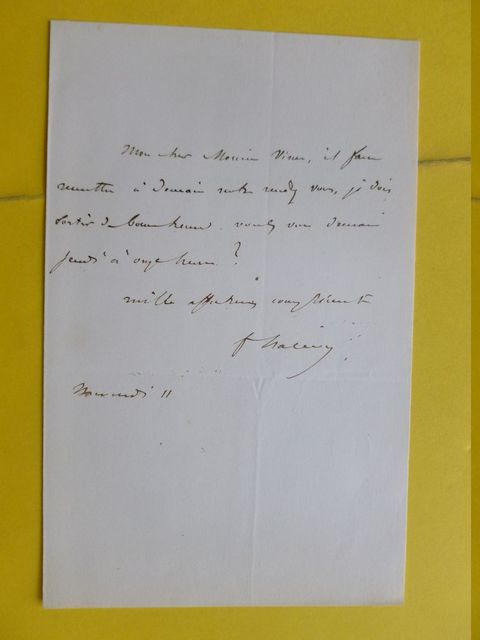 Mon cher Monsieur Vines, il faut
remettre à demain notre rendez vous, je dois
sortir de bonne heure. voulez vous demain
jeudi à onze heures ?
mille affectueux compliments
f halévy
Mercredi 11